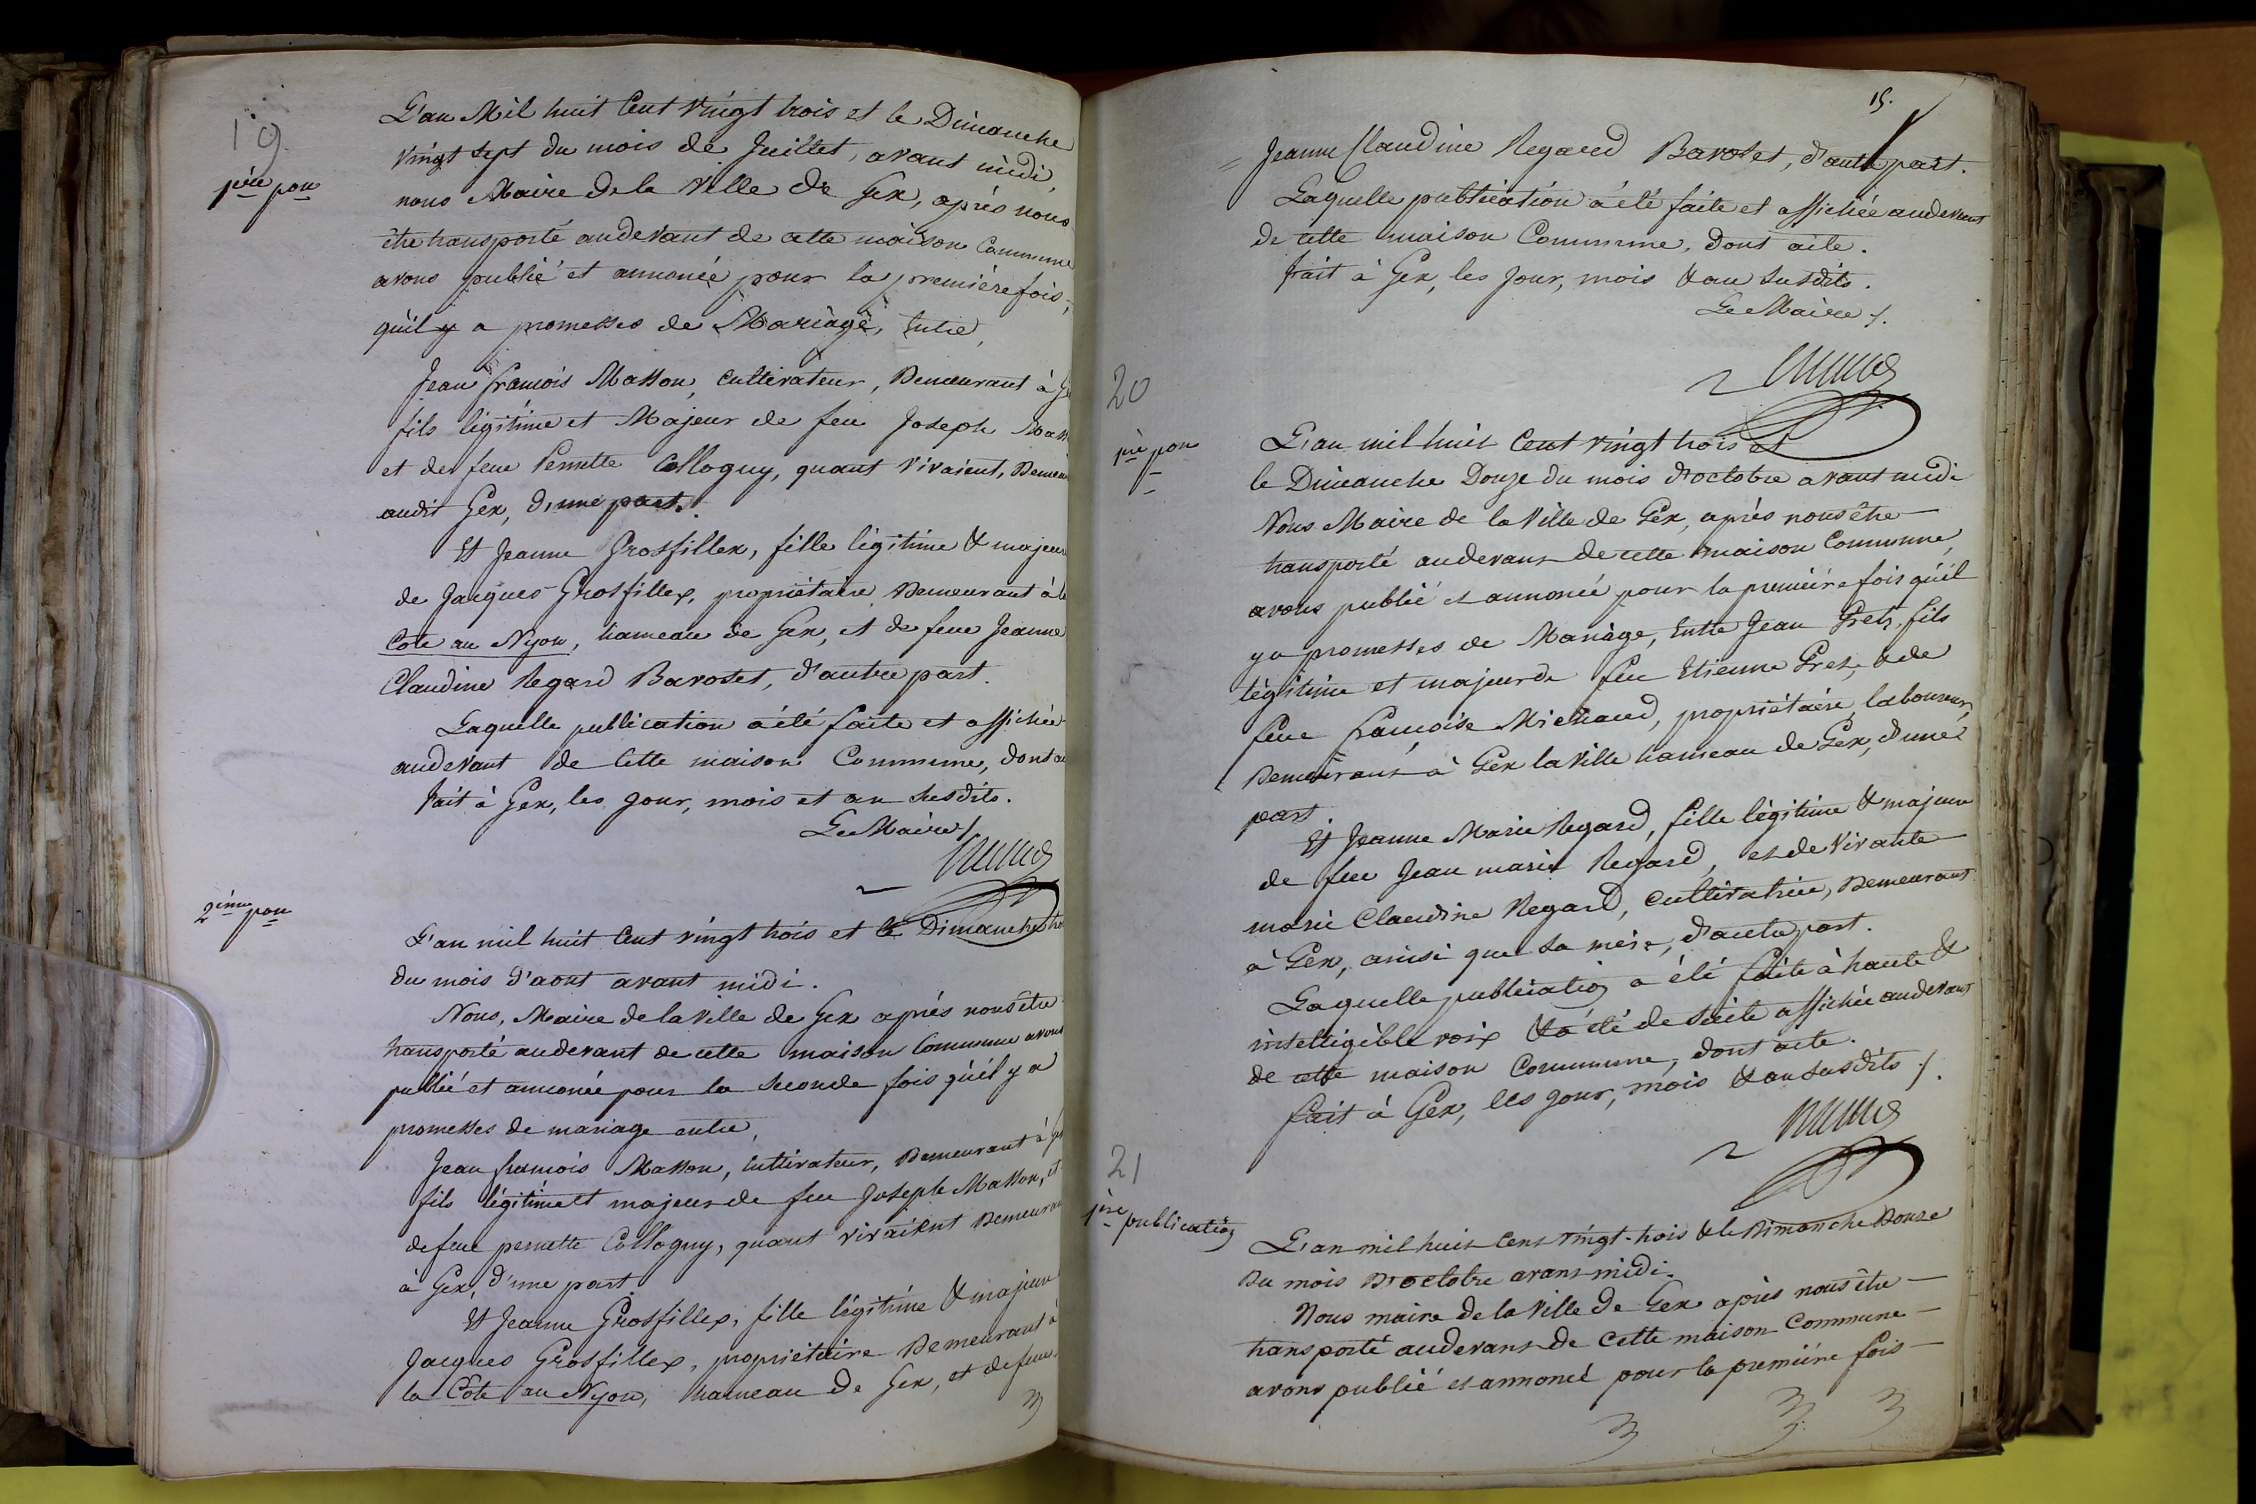 19
1ère pon
L'an Mil huit Cent Vingt trois et le Dimanche
vingt sept du mois de Juillet, avant midi,
nous Maire de la Ville de Gex, après nous
être transporté audevant de cette maison Commune
avons publié et annoncé pour la première fois,
qu'il y a promesses de Mariage, Entre,
Jean françois Masson, cultivateur, Demeurant à
fils légitime et Majeur de feu Joseph
et de feue Pernette Collogny, quant vivaient,
audit Gex, d'une part.
Et Jeanne Grosfillex, fille légitime & majeure
de Jacques Grosfillex, propriétaire Demeurant à la
Côte au Nyon, hameau de Gex, et de feue Jeanne
Claudine Regard Barotet, d'autre part.
Laquelle publication a été faite et affichée
audevant de Cette maison Commune, dont
fait à Gex, les jour, mois et an susdits.
Le Maire /.
2ième pon
L'an mil huit Cent vingt trois et le Dimanche
du mois d'aout avant midi.
Nous, Maire de la Ville de Gex après nous être
transporté audevant de cette maison Commune avons
publié et annoncé pour la seconde fois qu'il y a
promesses de mariage entre,
Jean françois Masson, Cultivateur, Demeurant à
fils légitime et majeur de feu Joseph Masson, et
de feue pernette Collogny, quant vivaient Demeurant
à Gex, d'une part.
Et Jeanne Grosfillex, fille légitime & majeure
Jacques Grosfillex, propriétaire Demeurant à
la Côte au Nyon, hameau de Gex, et de feue
15.
= Jeanne Claudine Regard Barotet, d'autre part.
Laquelle publication a été faite et affichée audevant
de cette maison Commune, dont acte.
fait à Gex, les jour, mois & an susdits.
Le Maire /.
20
1ère pon
L'an mil huit Cent vingt trois et
le Dimanche Douze du mois d'octobre avant midi
Nous Maire de la Ville de Gex, après nous être
transporté audevant de cette maison Commune,
avons publié et annoncé pour la première fois qu'il
y a promesses de Mariage, Entre Jean Pretz, fils
légitime et majeur de feu Etienne Pretz, & de
feue françoise Michaud, propriétaire, laboureur,
Demeurant à Gex la Ville hameau de Gex, d'une
part
Et Jeanne Marie Regard, fille légitime & majeure
de feu Jean marie Regard, et de Vivante
marie Claudine Regard, cultivatrice, Demeurant
à Gex, ainsi que sa mère, d'autre part.
Laquelle publication a été faite à haute &
intelligible voix & a été de suite affichée audevant
de cette maison Commune, dont acte.
fait à Gex, les jour, mois & an susdits /.
21
1ère publication
L'an mil huit Cent vingt-trois & le Dimanche Douze
Du mois D'octobre avant midi.
Nous maire de la Ville de Gex après nous être
transporté audevant de Cette maison Commune
avons publié et annoncé pour la première fois